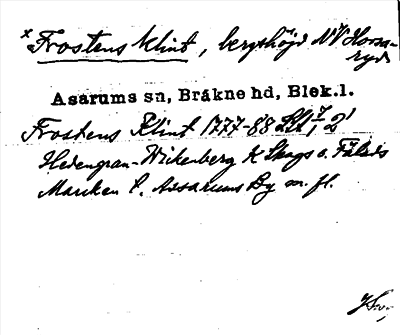 × Frostens klint, bergshöjd NV Hossaryd
Asarums sn, Bräkne hd, Blek.l.
Frostens Klint 1777-88 LSA, 2
Hedengran-Wickenberg K Skogs o. Fälads
Marcken t. Assarums By m. fl.